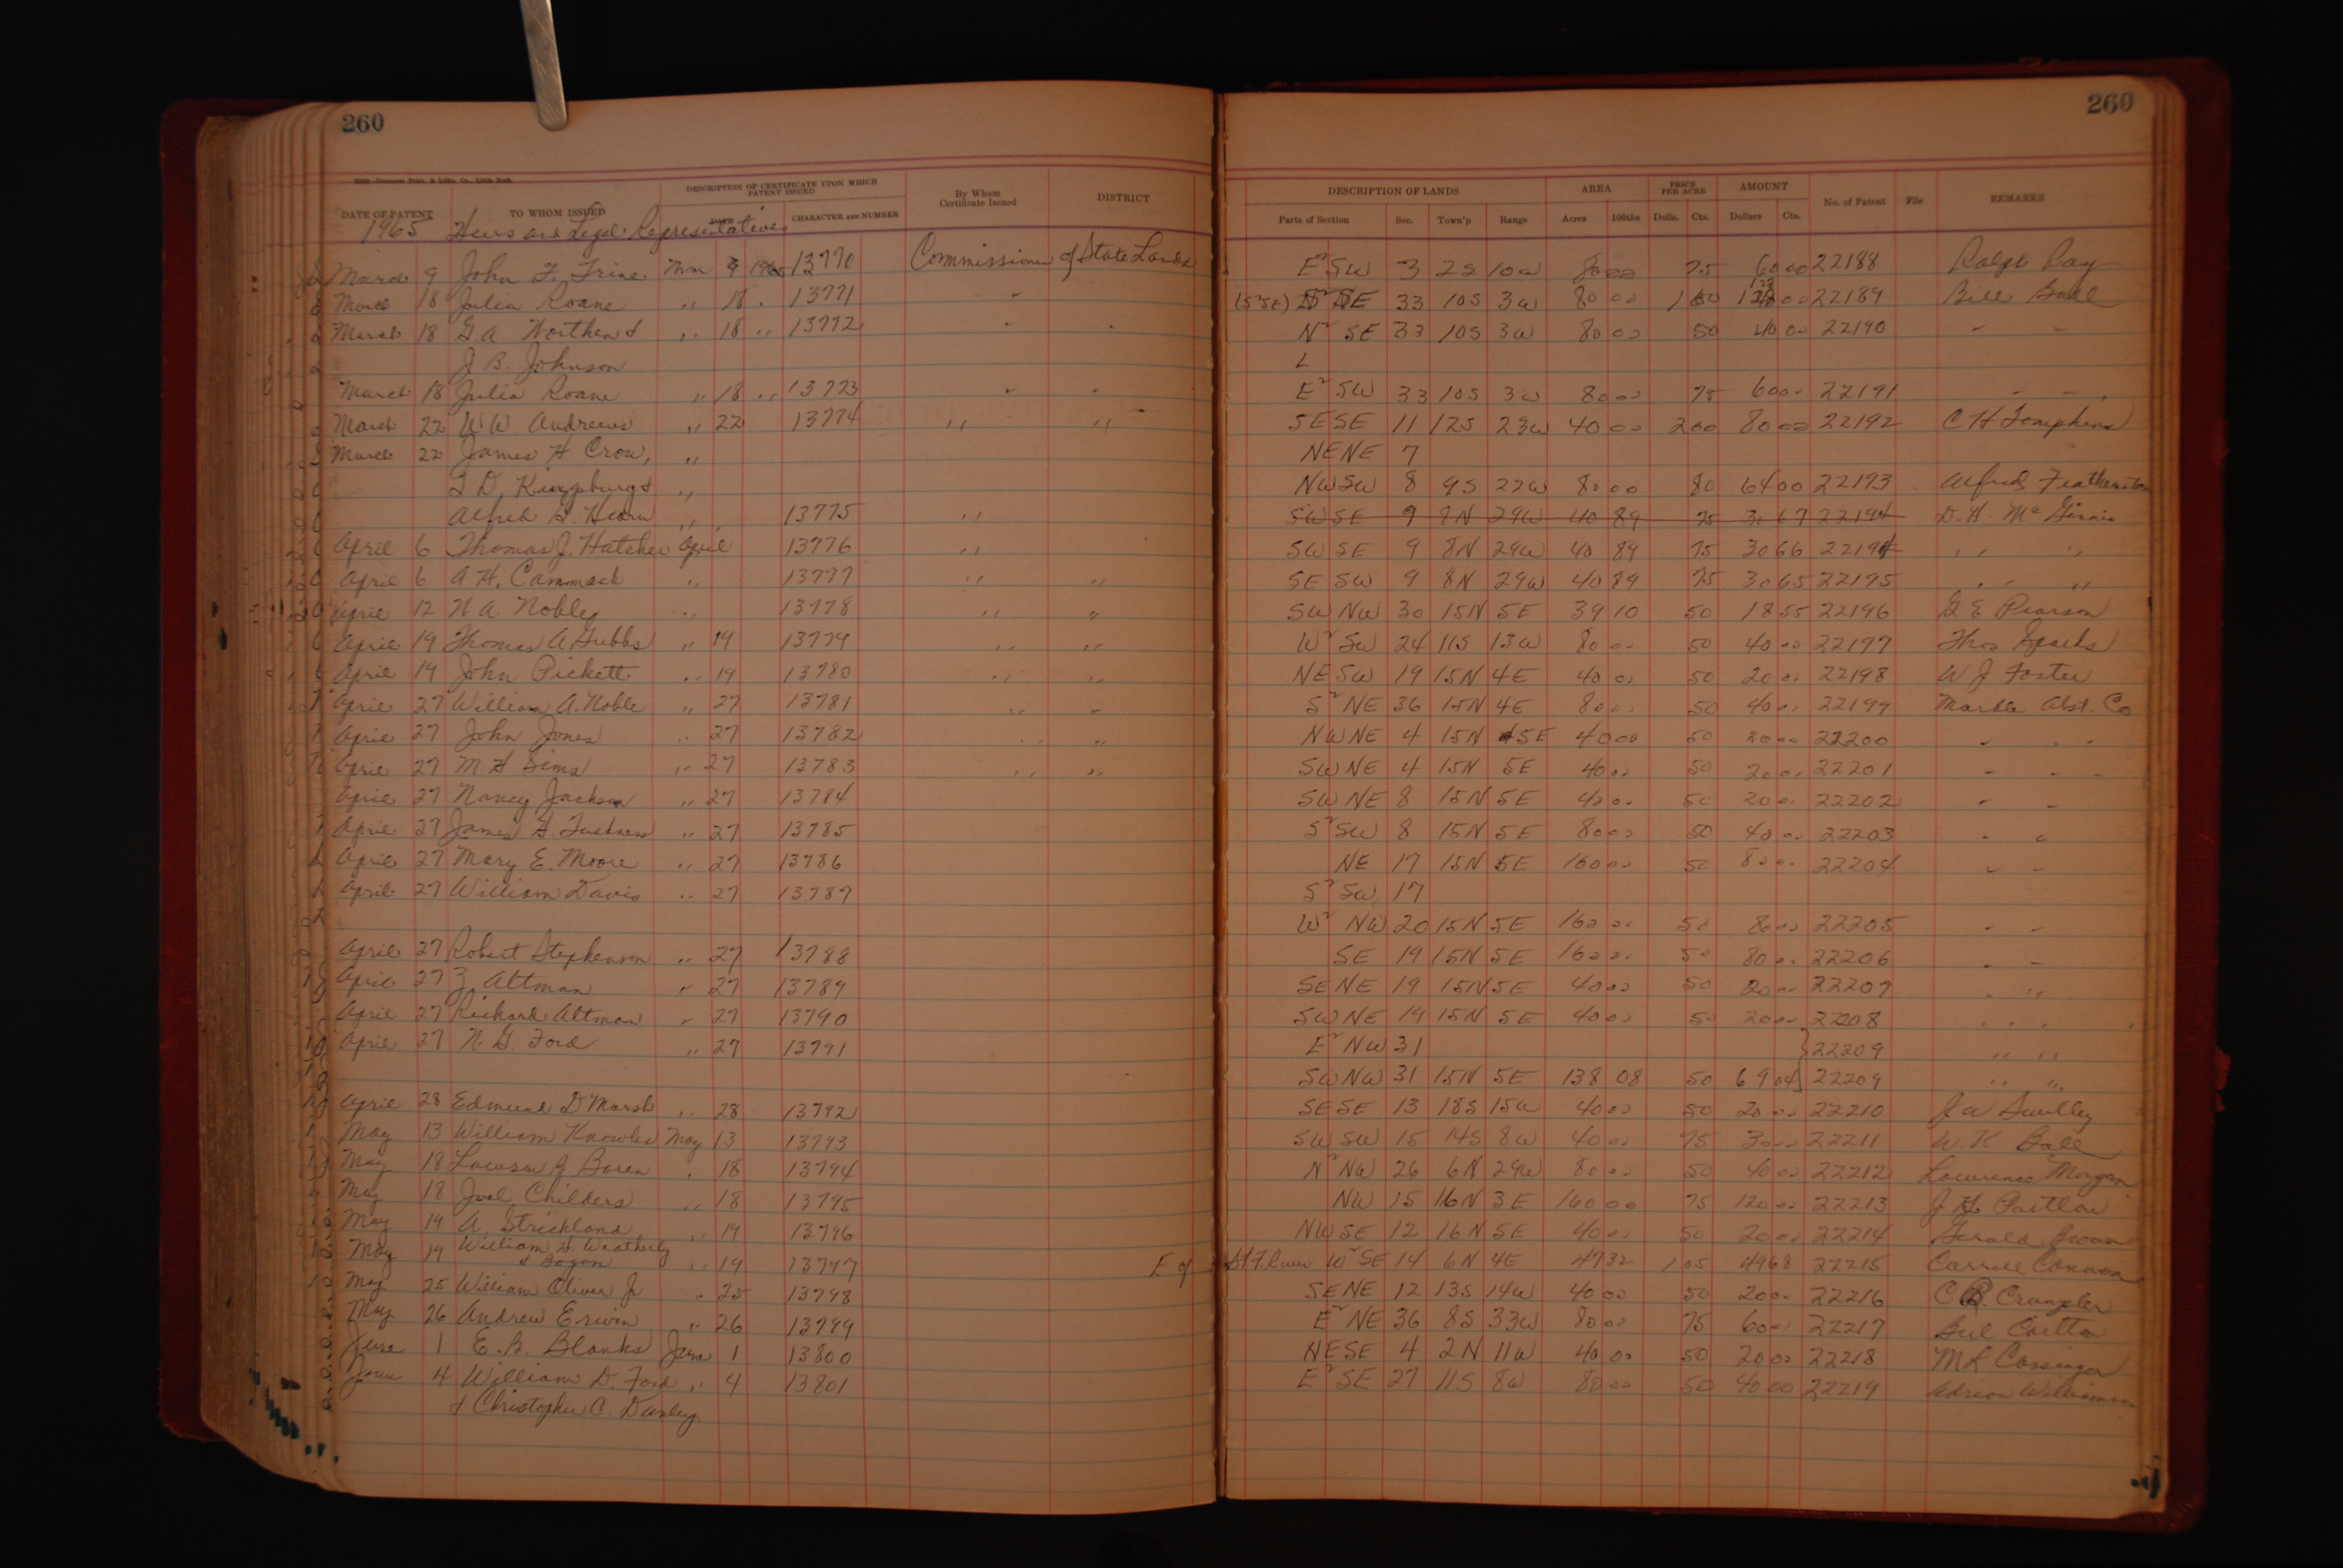 260
260
DATE OF PATENT TO WHOM ISSUED DESCRIPTION OF CERTIFICATE UPON WHICH PATENT ISSUED DATE CHARACTER AND NUMBER By Whom Certificate Issued DISTRICT DESCRIPTION OF LANDS Parts of Section Sec. Town'p Range AREA Acres 100ths PRICE PER ACRE Dolls. Cts. AMOUNT Dollars Cts. No. of Patent File REMARKS
1965 Heirs and Legal Representatives
March 9 John F. Trine Mar 9 1965 13770 Commissioner of State Lands E² SW 3 2S 10W 80 00 75 60 00 22188 Ralph Ray
March 18 Julia Roane " 18 " 13771 " (S²SE) SE 33 10S 3W 80 00 1 60 128 00 22189 Bill Ball
March 18 G A Northen & " 18 " 13772 " " N² SE 33 10S 3W 80 00 50 40 00 22190 " "
J. B. Johnson
March 18 Julia Roane " 18 " 13773 " " E² SW 33 10S 3W 80 00 75 60 00 22191 " "
March 22 W W Andrews " 22 13774 " " SE SE 11 12S 23W 40 00 2 00 80 00 22192 C H Tompkins
March 22 James H Crow, " NE NE 7
T D, Kingsbury & " NW SW 8 9S 22W 80 00 80 64 00 22193 Alfred Featherston
Alfred G. Hearn " 13775 " SW SE 9 8N 29W 40 89 75 30 67 22194 D. H. McGinnis
April 6 Thomas J. Hatcher April 13776 " SW SE 9 8N 29W 40 89 75 30 66 22194 " "
April 6 A H. Cammack " 13777 " " SE SW 9 8N 29W 40 89 75 30 65 22195 " "
April 12 W A. Nobles " 13778 " " SW NW 30 15N 5E 39 10 50 18 55 22196 G E Pearson
April 19 Thomas A Grubbs " 19 13779 " " W² SW 24 11S 13W 80 00 50 40 00 22197 Thos Sparks
April 19 John Pickett " 19 13780 " " NE SW 19 15N 4E 40 00 50 20 00 22198 W J Foster
April 27 William A. Noble " 27 13781 " " S² NE 36 15N 4E 80 00 50 40 00 22199 Markle Abst. Co
April 27 John Jones " 27 13782 " " NW NE 4 15N 5E 40 00 50 20 00 22200 " " "
April 27 M H Sims " 27 13783 " " SW NE 4 15N 5E 40 00 50 20 00 22201 " " "
April 27 Nancy Jackson " 27 13784 SW NE 8 15N 5E 40 00 50 20 00 22202 " "
April 27 James H. Tuckness " 27 13785 S² SW 8 15N 5E 80 00 50 40 00 22203 " "
April 27 Mary E. Moore " 27 13786 NE 17 15N 5E 160 00 50 80 00 22204 " "
April 27 William Davis " 27 13787 S² SW 17
W² NW 20 15N 5E 160 00 50 80 00 22205 " "
April 27 Robert Stephenson " 27 13788 SE 19 15N 5E 160 00 50 80 00 22206 " "
April 27 Z. Altman " 27 13789 SE NE 19 15N 5E 40 00 50 20 00 22207 " "
April 27 Richard Altman " 27 13790 SW NE 19 15N 5E 40 00 50 20 00 22208 " "
April 27 N. G. Ford " 27 13791 E² NW 31 22209 " "
SW NW 31 15N 5E 138 08 50 69 04 22209 " "
April 28 Edmund D Marsh " 28 13792 SE SE 13 18S 15W 40 00 50 20 00 22210 J W
May 13 William Knowles May 13 13793 SW SW 15 14S 8W 40 00 75 30 00 22211 W. K Ball
May 18 Lawson B Boren " 18 13794 N² NW 26 6N 29W 80 00 50 40 00 22212 Lawrence Morgan
May 18 Joel Childers " 18 13795 NW 15 16N 3E 160 00 75 120 00 22213 J H Partlow
May 19 A. Strickland " 19 13796 NW SE 12 16N 5E 40 00 50 20 00 22214 Gerald Brown
May 19 William H Weatherly " 19 13797 E of St F. River W² SE 14 6N 4E 47 32 1 05 49 68 22215 Carroll Cannon
& Bogon
May 25 William Oliver Jr " 25 13798 SE NE 12 13S 14W 40 00 50 20 00 22216 C B. Crumpler
May 26 Andrew Erwin " 26 13799 E² NE 36 8S 33W 80 00 75 60 00 22217 Bill Carlton
June 1 E. B. Blanks June 1 13800 NE SE 4 2N 11W 40 00 50 20 00 22218 M L Cassinger
June 4 William D. Ford " 4 13801 E² SE 27 11S 8W 80 00 50 40 00 22219 Adrian Williamson
& Christopher C. Danley